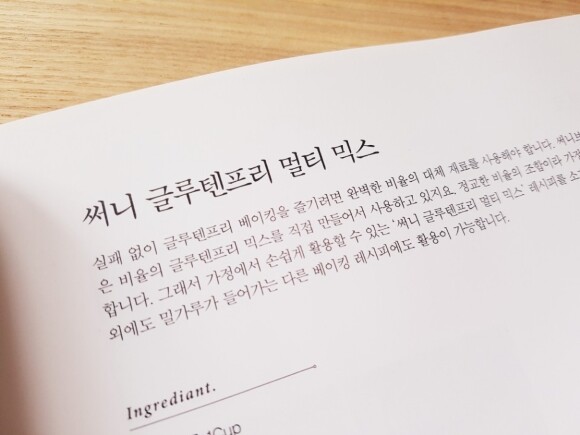 써니 글루텐프리 멀티 믹스
실패 없이 글루텐프리 베이킹을 즐기려면 완벽한 비율의 대체 재료를 사용해야 합니다. 써니브
은 비율의 글루텐프리 믹스를 직접 만들어서 사용하고 있지요. 정교한 비율의 조합이라 가정
합니다. 그래서 가정에서 손쉽게 활용할 수 있는 '써니 글루텐프리 멀티 믹스' 레시피를 소
외에도 밀가루가 들어가는 다른 베이킹 레시피에도 활용이 가능합니다.
Ingrediant.
1Cup